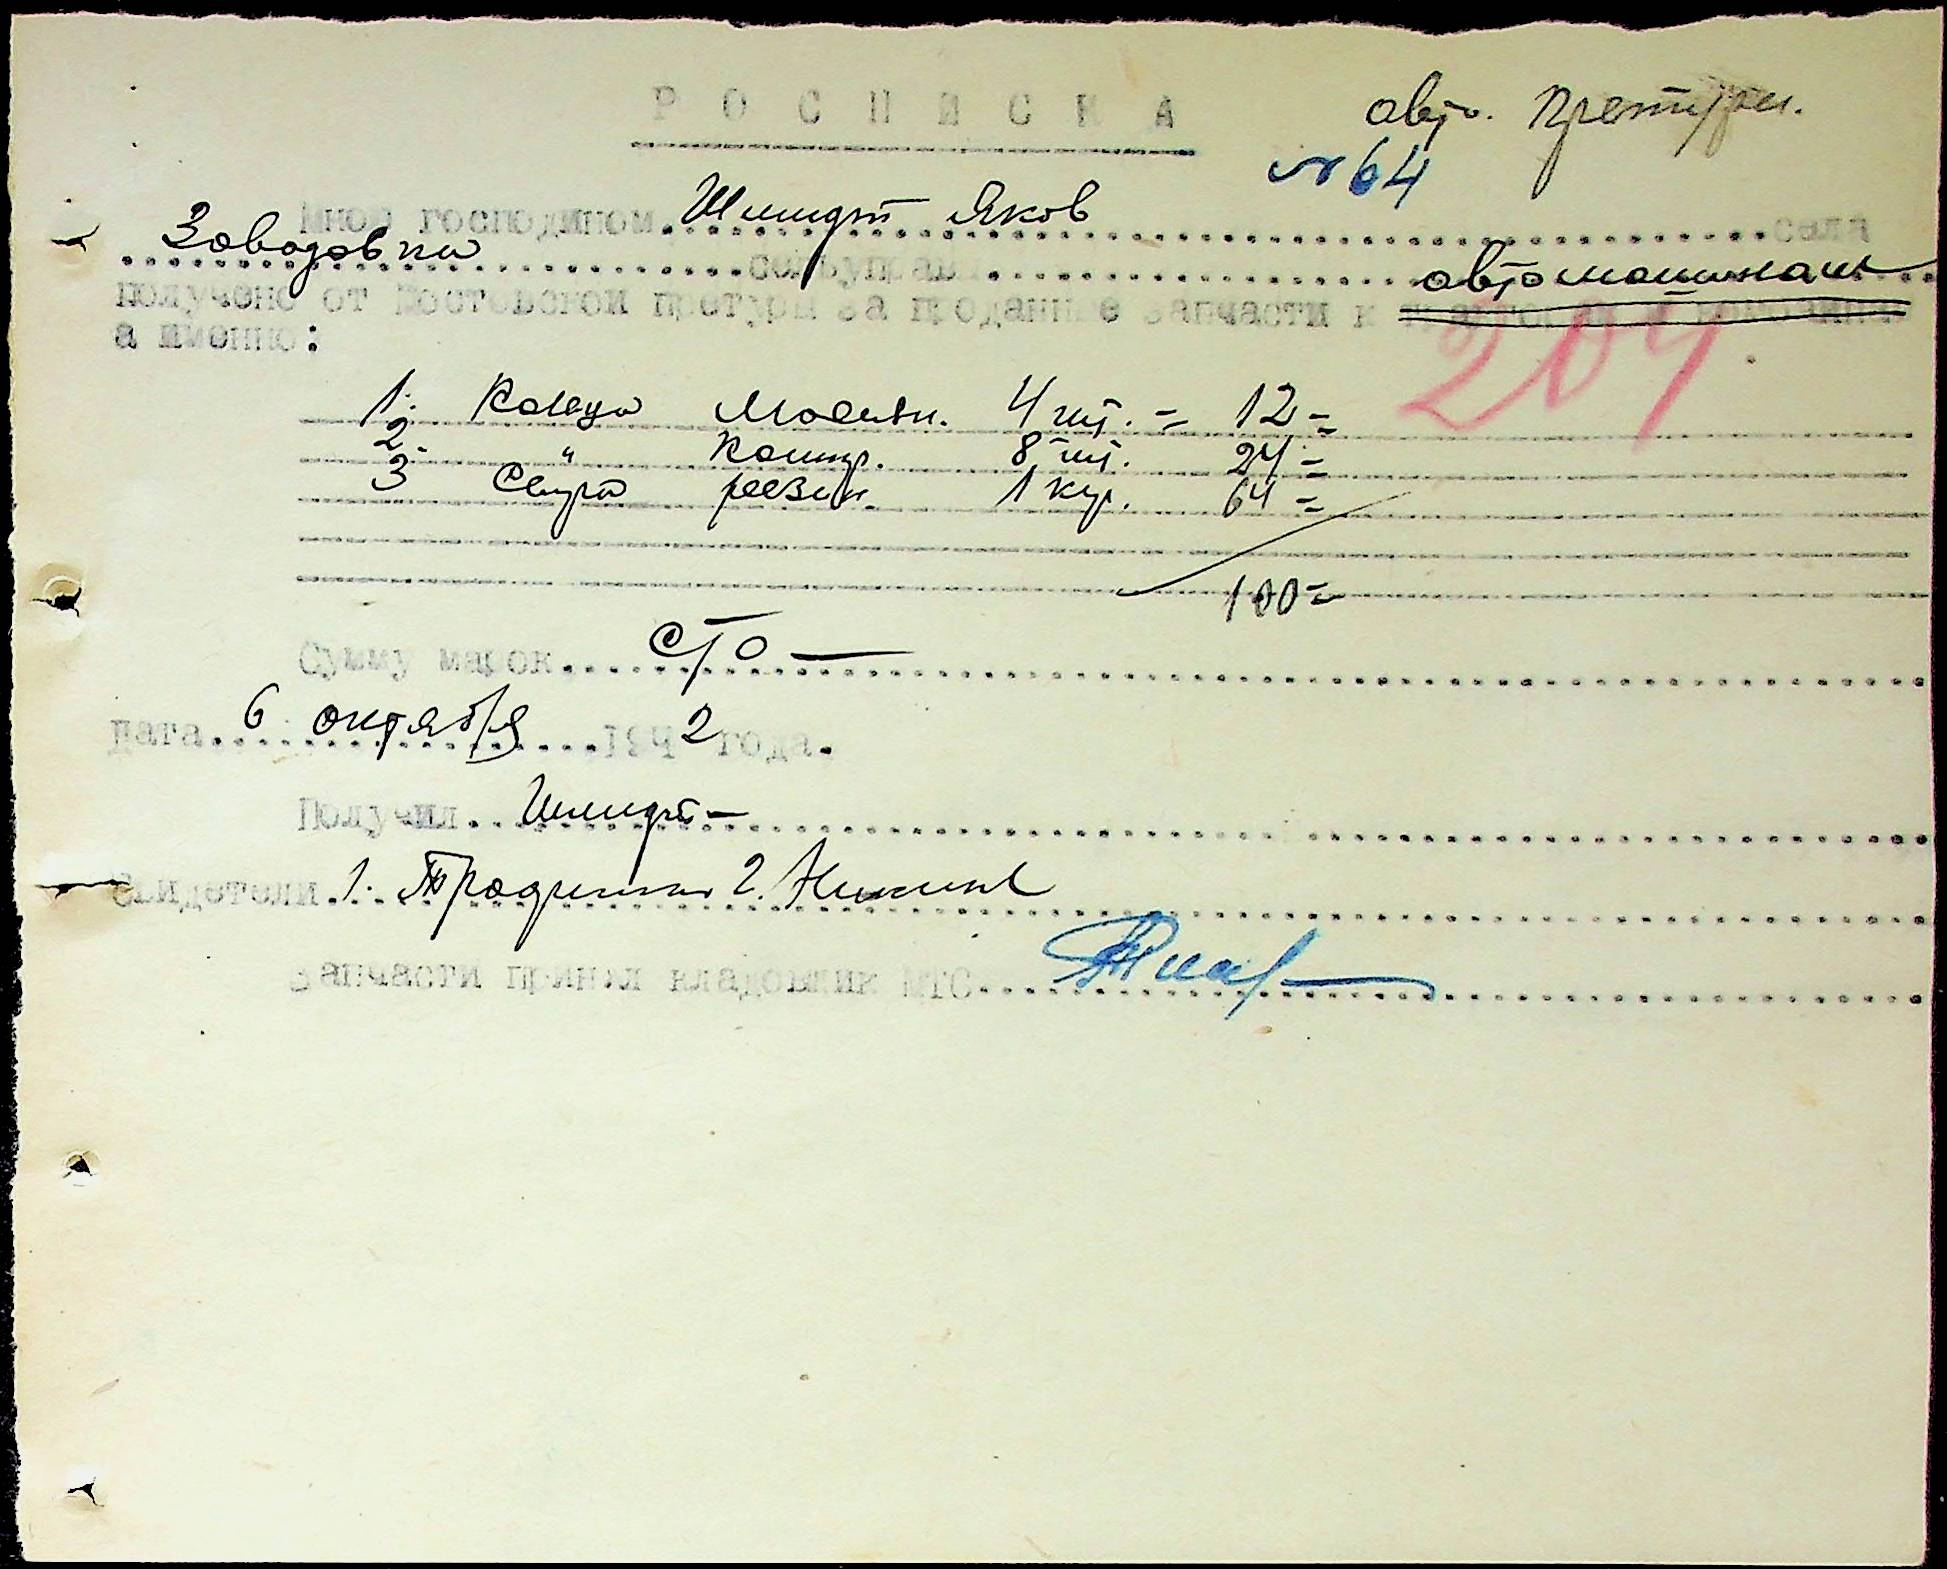 РОСПИСКА
авто. Претуры.
№ 64
Мною господином Шмидт Яков села
Заводовка сельуправ автомашинам
получено от Мостовской претуры за проданные запчасти к тракторам и комбайнам
204
а именно:
1. Кольца Маслян. 4 шт. = 12 =
2. " Компр. 8 шт. 24 =
3 Сыра резин. 1 кгр. 64 =
100 =
Сумму марок сто —
Дата 6 октября 1942 года.
Получил Шмидт
Свидетели 1. 2.
Запчасти принял кладовщик МТС